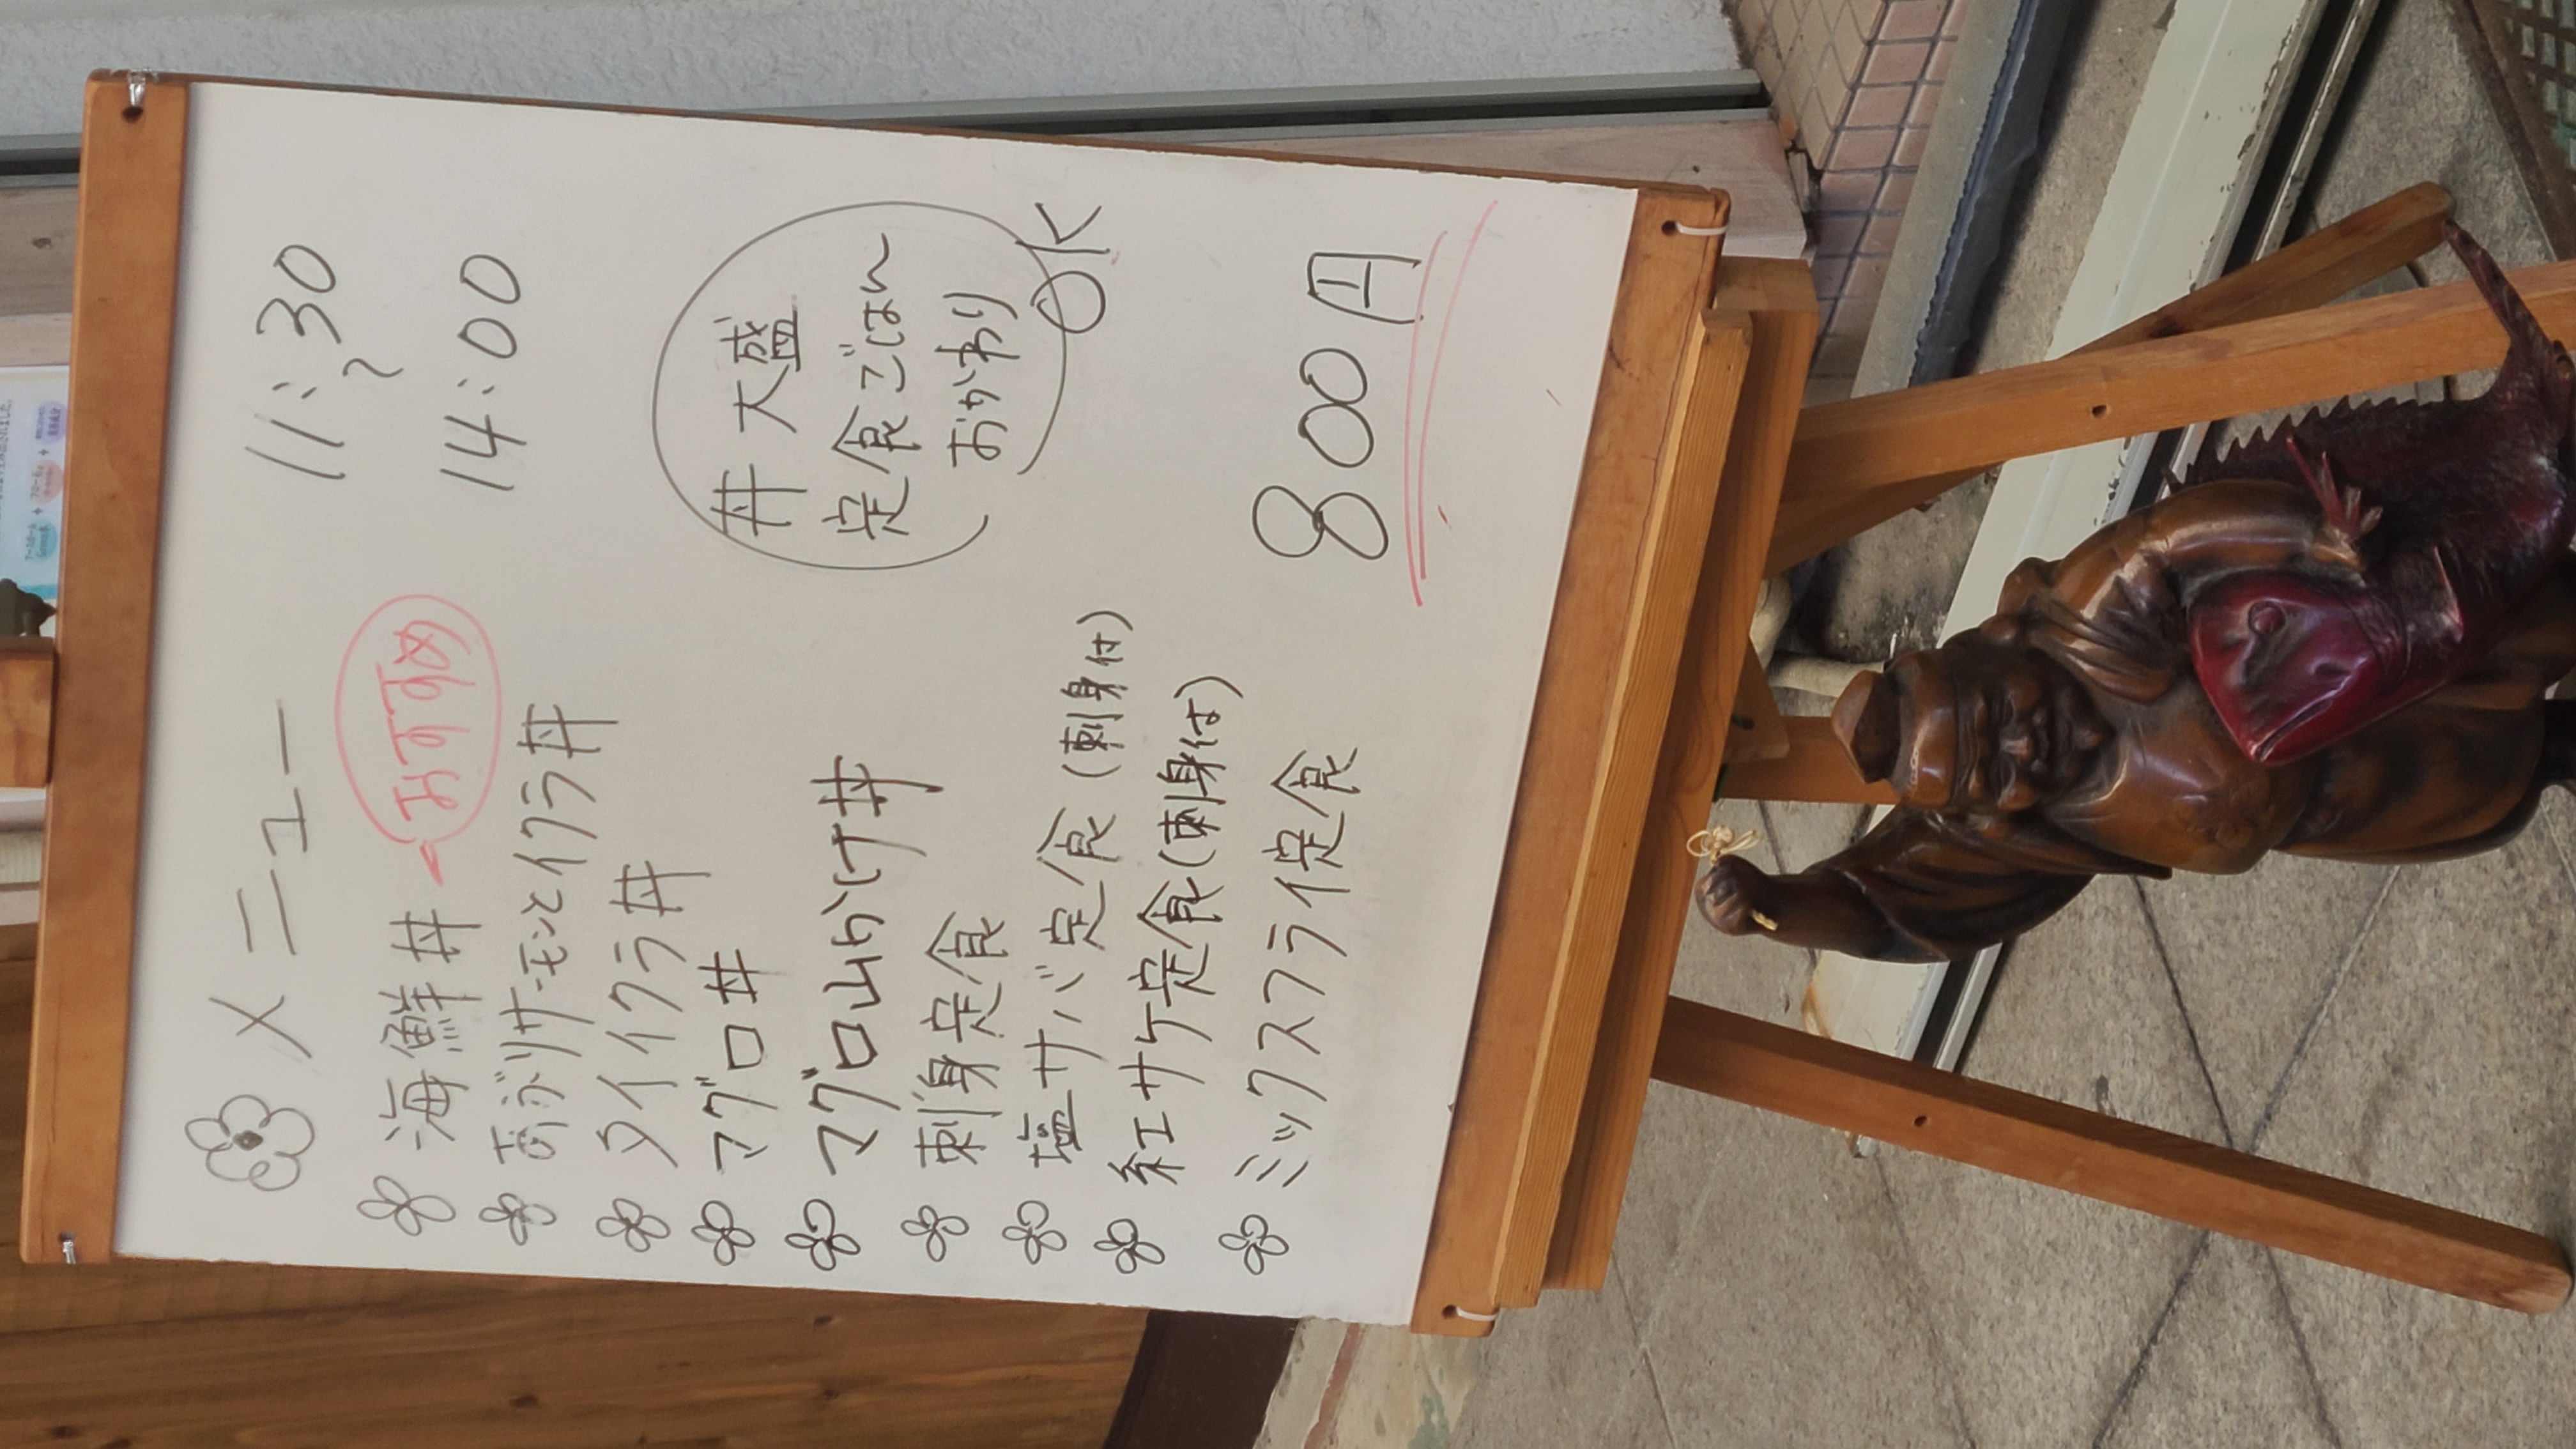 メニュー
11:30
〜
14:00
海鮮丼
おすすめ
あぶりサーモンとイクラ丼
タイイクラ丼
マグロ丼
マグロ山かけ丼
刺身定食
塩サバ定食(刺身付)
紅サケ定食(刺身付)
ミックスフライ定食
丼大盛
定食ごはん
(おかわり)
OK
800円